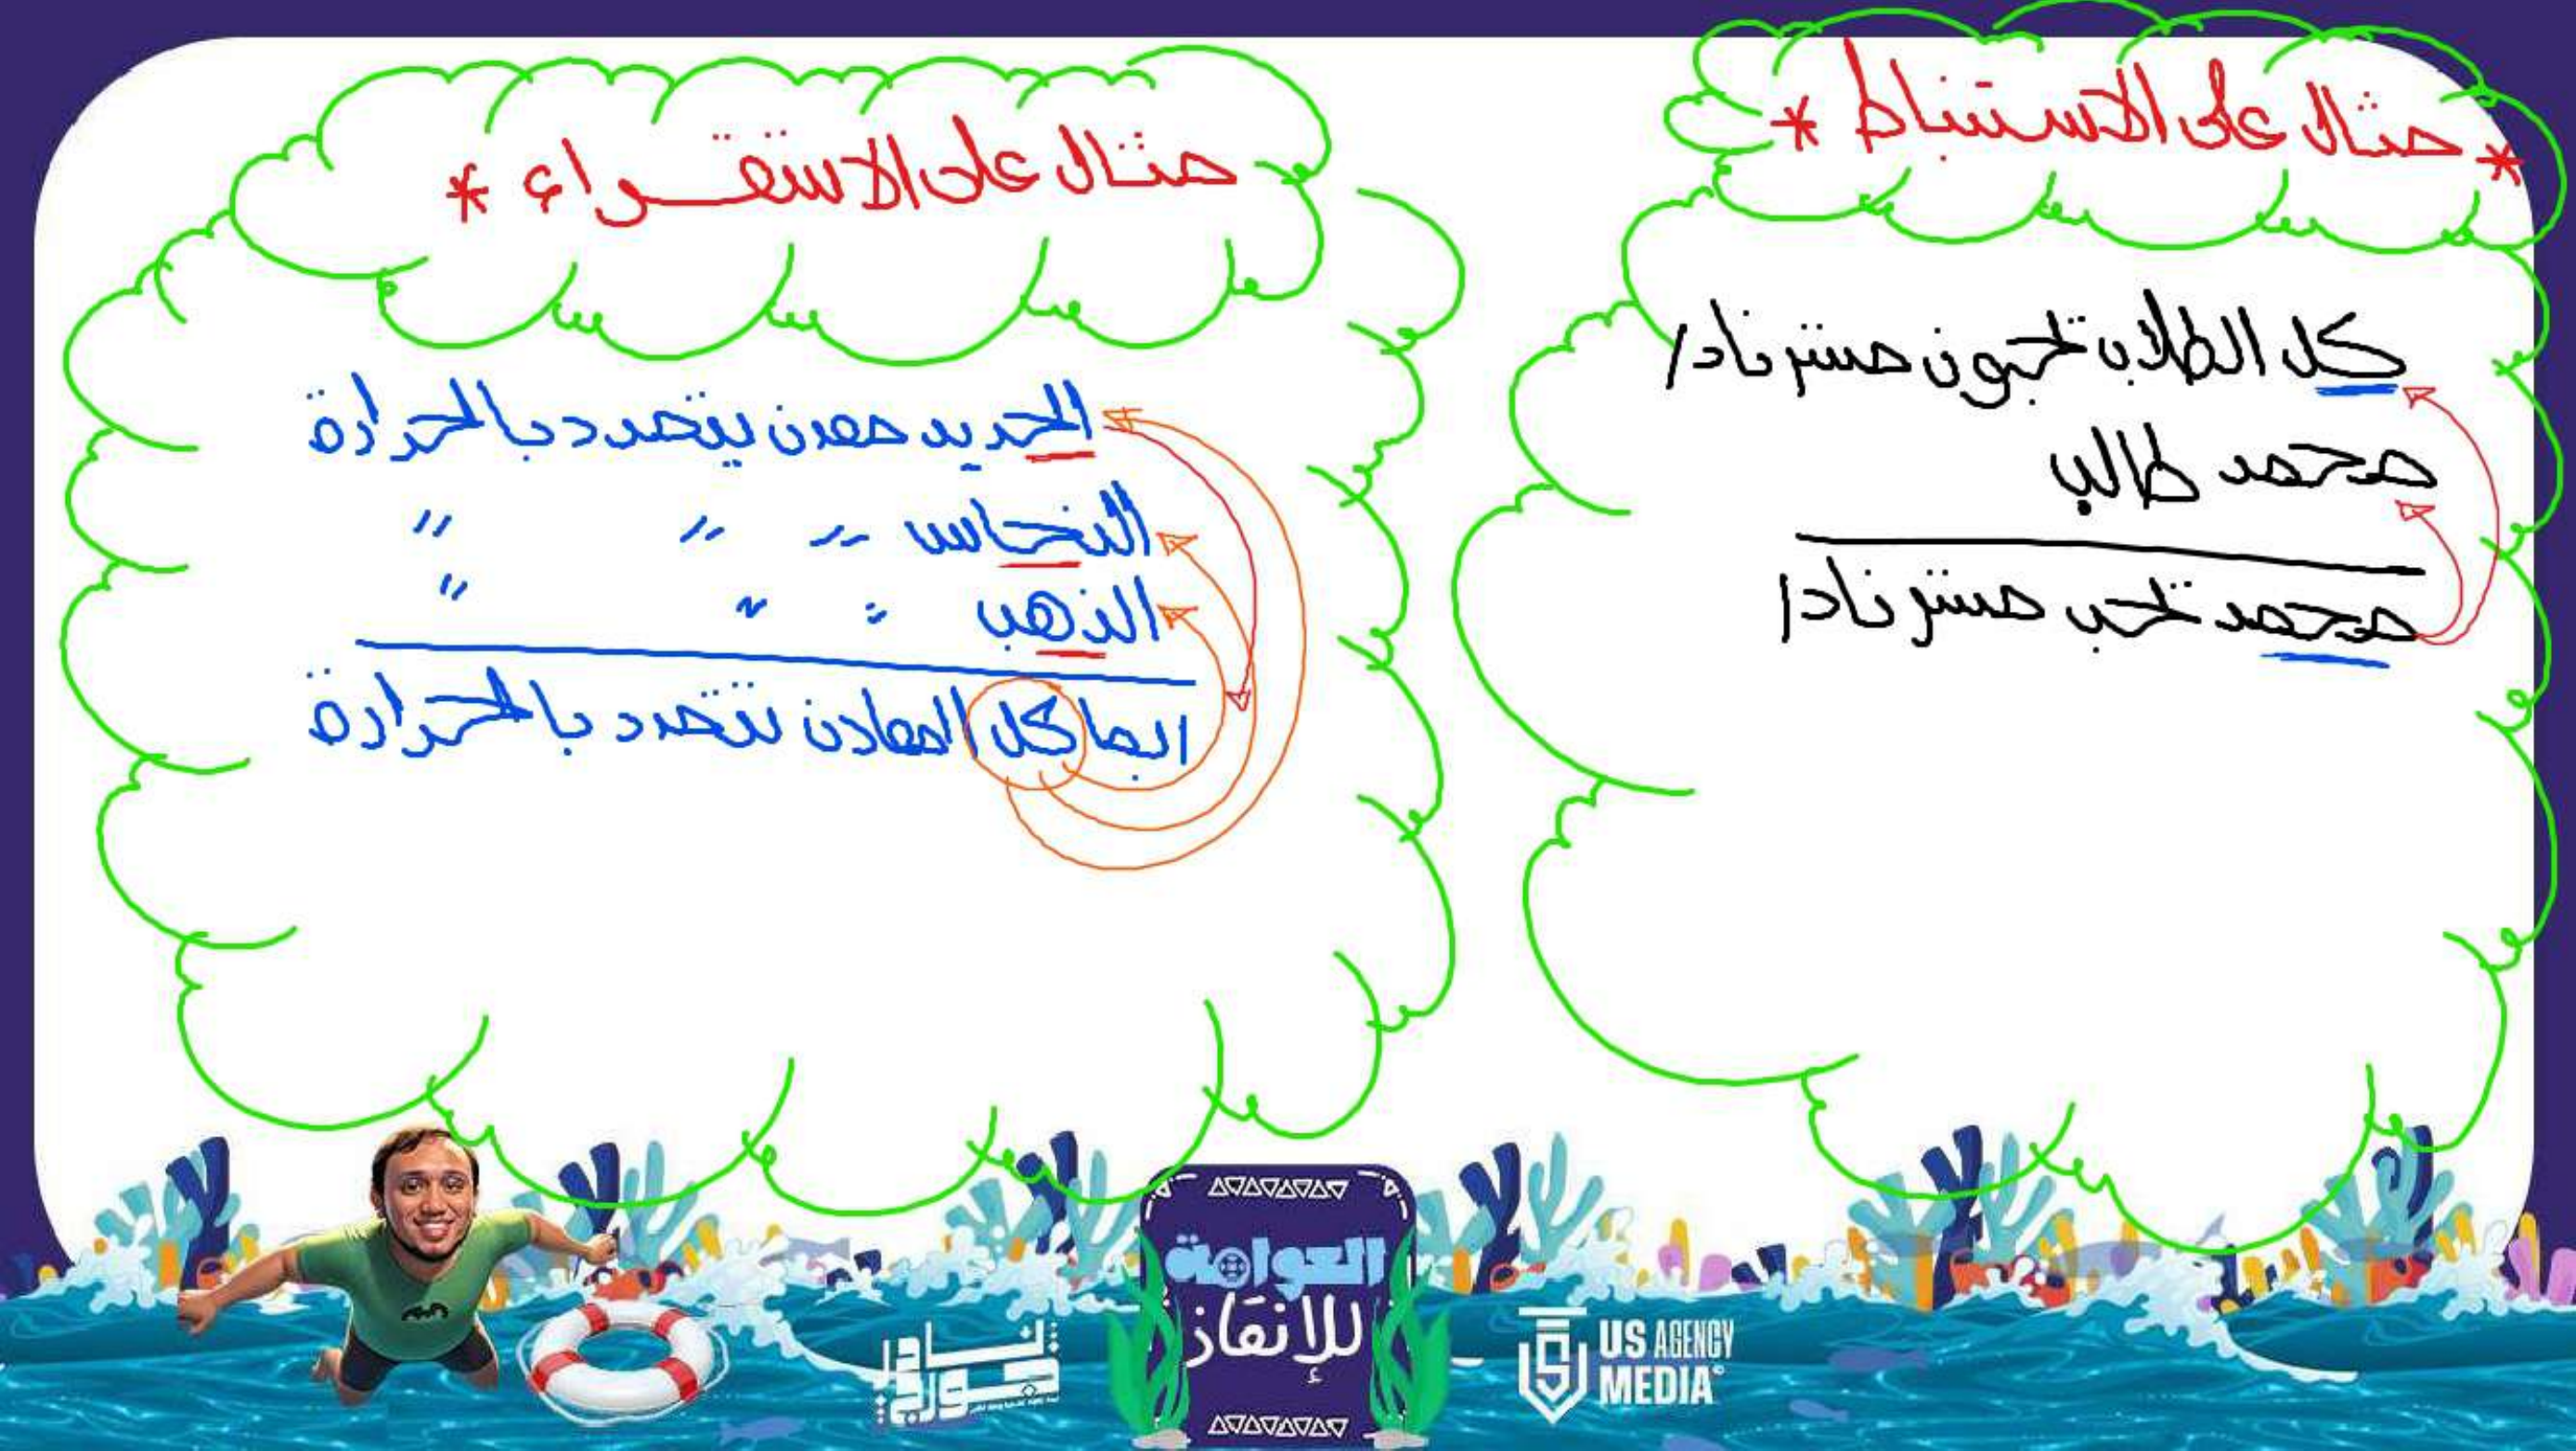 * مثال على الاستنباط *
كل الطلاب تحبون مستر نادر
محمد طالب
محمد تحب مستر نادر
مثال على الاستقراء *
الحديد معدن يتمدد بالحرارة
النحاس " " "
الذهب " " "
ايما كل المعادن تتمدد بالحرارة
نادر جورج
العوامة
للإنقاذ
US AGENCY
MEDIA